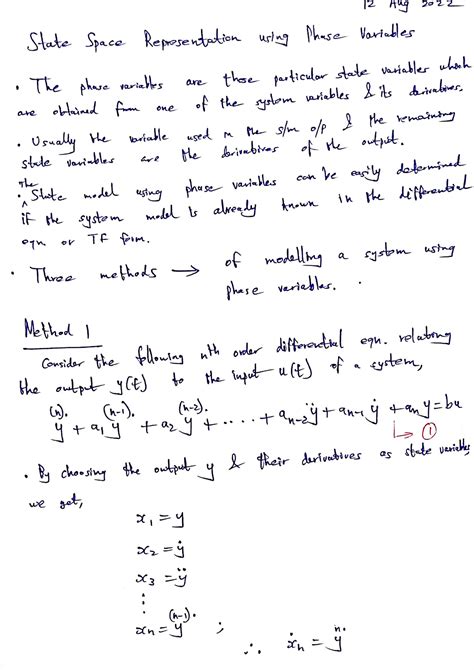 12 Aug 2022
State Space Representation using Phase Variables
• The phase variables are those particular state variables which
are obtained from one of the system variables & its derivatives.
• Usually the variable used is the s/m o/p & the remaining
state variables are the derivatives of the output.
• The State model using phase variables can be easily determined
if the system model is already known in the differential
eqn or TF form.
• Three methods → of modelling a system using
phase variables.
Method 1
Consider the following nth order differential eqn. relating
the output y(t) to the input u(t) of a system,
y⁽ⁿ⁾˙ + a₁ y⁽ⁿ⁻¹⁾˙ + a₂ y⁽ⁿ⁻²⁾˙ + ..... + aₙ₋₂ ÿ + aₙ₋₁ ẏ + aₙ y = bu
↳ ①
• By choosing the output y & their derivatives as state variables,
we get,
x₁ = y
x₂ = ẏ
x₃ = ÿ
⋮
xₙ = y⁽ⁿ⁻¹⁾˙ ; ∴ ẋₙ = yⁿ˙